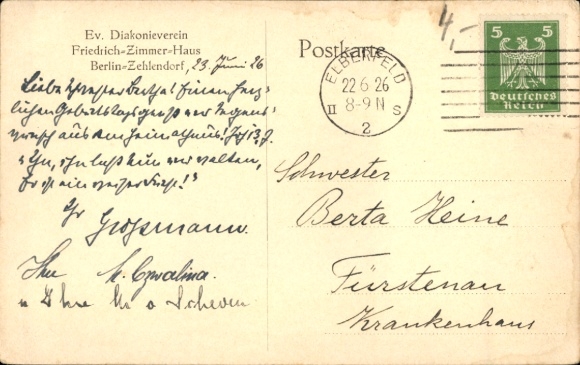 Ev. Diakonieverein
Friedrich-Zimmer-Haus
Berlin-Zehlendorf, 23. Juni 26
Liebe Schwester Bertha! Einen herz-
lichen Geburtstagsgruß und Segens-
wunsch aus dem Heimathaus!
"Ihn, ihn laß tun und walten,
Er ist ein weiser Fürst!"
Ihr Großmann.
Ihre M. Czwalina.
Postkarte
4,-
ELBERFELD
22.6.26
8-9 N
II S
2
5 5
Deutsches
Reich
Schwester
Berta Heine
Fürstenau
Krankenhaus